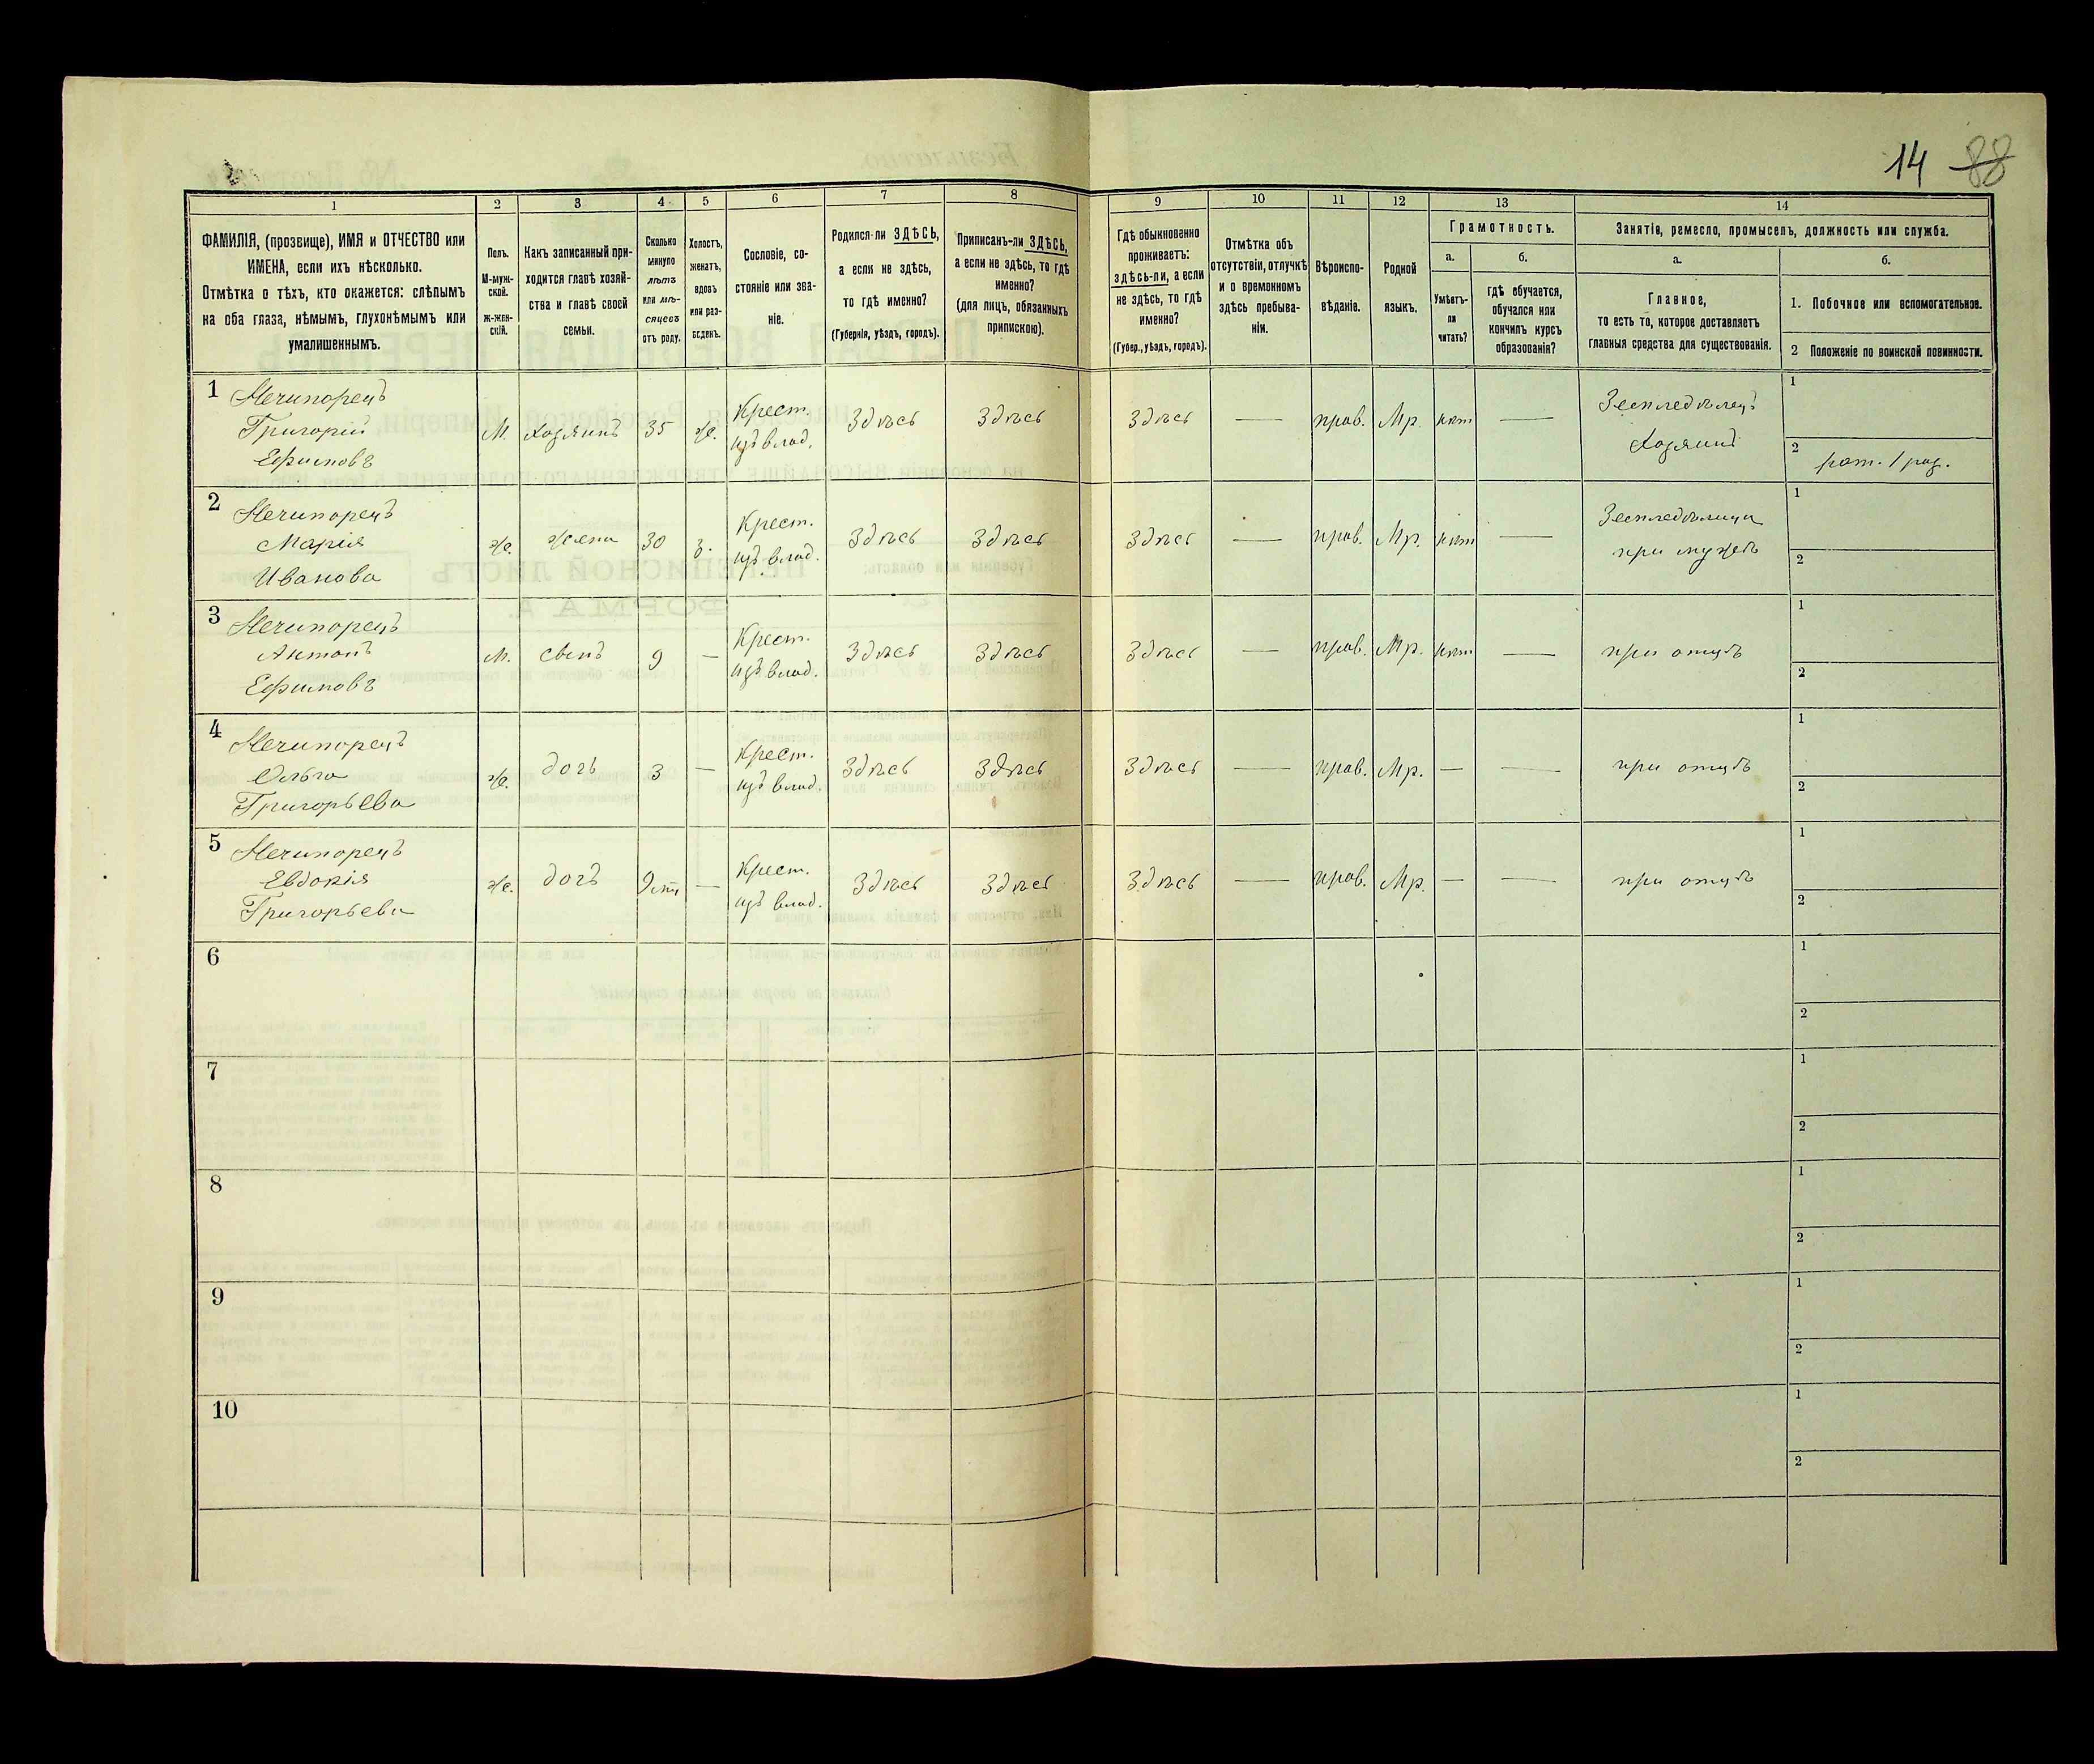 14 88
1
2
3
4
5
6
7
8
9
10
11
12
13
14
ФАМИЛІЯ, (прозвище), ИМЯ и ОТЧЕСТВО или
ИМЕНА, если ихъ нѣсколько.
Отмѣтка о тѣхъ, кто окажется: слѣпымъ
на оба глаза, нѣмымъ, глухонѣмымъ или
умалишеннымъ.
Полъ.
М-муж-
ской.
ж-жен-
скій.
Какъ записанный при-
ходится главѣ хозяй-
ства и главѣ своей
семьи.
Сколько
минуло
лѣтъ
или мѣ-
сяцевъ
отъ роду.
Холостъ,
женатъ,
вдовъ
или раз-
веденъ.
Сословіе, со-
стояніе или зва-
ніе.
Родился-ли ЗДѢСЬ,
а если не здѣсь,
то гдѣ именно?
(Губернія, уѣздъ, городъ).
Приписанъ-ли ЗДѢСЬ,
а если не здѣсь, то гдѣ
именно?
(для лицъ, обязанныхъ
припискою).
Гдѣ обыкновенно
проживаетъ:
здѣсь-ли, а если
не здѣсь, то гдѣ
именно?
(Губер., уѣздъ, городъ).
Отмѣтка объ
отсутствіи, отлучкѣ
и о временномъ
здѣсь пребыва-
ніи.
Вѣроиспо-
вѣданіе.
Родной
языкъ.
Грамотность.
а.
Умѣетъ-
ли
читать?
б.
гдѣ обучается,
обучался или
кончилъ курсъ
образованія?
Занятіе, ремесло, промыселъ, должность или служба.
а.
Главное,
то есть то, которое доставляетъ
главныя средства для существованія.
б.
1. Побочное или вспомогательное.
2 Положеніе по воинской повинности.
1 Нечипорецъ
Григорій
Ефимовъ
М.
хозяинъ
35
ж.
Крест.
изъ влад.
Здѣсь
Здѣсь
Здѣсь
—
прав.
Мр.
нѣт
—
Земледѣлецъ
Хозяинъ
1
2
рат. 1 раз.
2 Нечипорецъ
Марія
Иванова
ж.
жена
30
з.
Крест.
изъ влад.
Здѣсь
Здѣсь
Здѣсь
—
прав.
Мр.
нѣт
—
Земледѣлица
при мужѣ
1
2
3 Нечипорецъ
Антонъ
Ефимовъ
М.
сынъ
9
—
Крест.
изъ влад.
Здѣсь
Здѣсь
Здѣсь
—
прав.
Мр.
нѣт
—
при отцѣ
1
2
4 Нечипорецъ
Ольга
Григорьева
ж.
дочь
3
—
Крест.
изъ влад.
Здѣсь
Здѣсь
Здѣсь
—
прав.
Мр.
—
—
при отцѣ
1
2
5 Нечипорецъ
Евдокія
Григорьева
ж.
дочь
—
Крест.
изъ влад.
Здѣсь
Здѣсь
Здѣсь
—
прав.
Мр.
—
—
при отцѣ
1
2
6
1
2
7
1
2
8
1
2
9
1
2
10
1
2